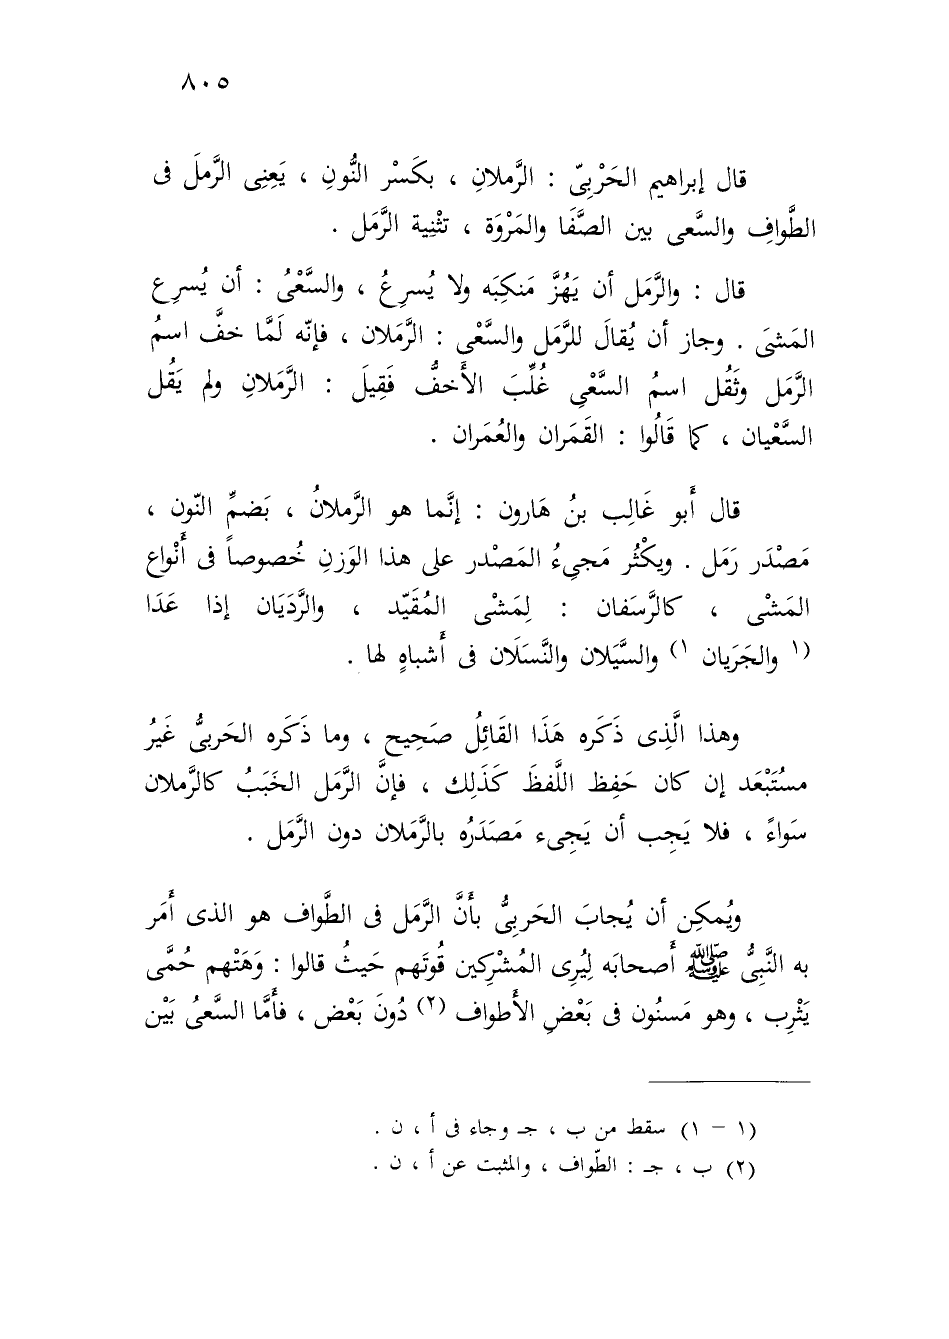 ٨٠٥
قال إبراهيم الحَرْبِىّ : الرَّملانِ ، بكَسْر النُّونِ ، يَعِنِى الرَّملَ فى
الطَّوافِ والسَّعى بين الصَّفَا والمَرْوَة ، تثْنِية الرَّمَل .
قال : والرَّمَل أن يَهُزَّ مَنكِبَه ولا يُسرِعُ ، والسَّعْىُ : أن يُسرِع
المَشىَ . وجاز أن يُقالَ للرَّمَل والسَّعْى : الرَّمَلان ، فإنّه لَمَّا خفَّ اسمُ
الرَّمَل وثَقُل اسمُ السَّعْىِ غُلِّبَ الأَخفُّ فَقِيلَ : الرَّمَلانِ ولم يَقُل
السَّعْيان ، كما قَالُوا : القَمَران والعُمَران .
قال أَبو غَالِب بنُ هَارون : إنَّما هو الرَّملانُ ، بَضمِّ النّون ،
مَصْدَر رَمَل . ويكْثُر مَجىءُ المَصْدر على هذا الوَزنِ خُصوصاً فى أَنْواع
المَشْى ، كالرَّسَفان : لِمَشْى المُقَيّد ، والرَّدَيَان إذا عَدَا
(١ والجَرَيان ١) والسَّيَلان والنَّسَلَان فى أَشباهٍ لها .
وهذا الَّذِى ذَكَره هَذَا القَائلُ صَحِيح ، وما ذَكَره الحَربىُّ غَيرُ
مستُبْعَد إن كان حَفِظ اللَّفظَ كَذَلِك ، فإنَّ الرَّمَل الخَبَبُ كالرَّملان
سَواءً ، فلا يَجِب أن يَجِىء مَصَدَرُه بالرَّمَلان دون الرَّمَل .
ويُمكِن أن يُجابَ الحَربىُّ بأَنَّ الرَّمَل فى الطَّواف هو الذى أَمَر
به النَّبِىُّ ﷺ أَصحابَه لِيُرِى المُشْرِكين قُوتَهم حَيثُ قالوا : وَهَتْهم حُمَّى
يَثْرِب ، وهو مَسنُون فى بَعْضِ الأَطواف (٢) دُونَ بَعْض ، فأَمَّا السَّعىُ بَيْن
(١ – ١) سقط من ب ، جـ وجاء فى أ ، ن .
(٢) ب ، جـ : الطّواف ، والمثبت عن أ ، ن .